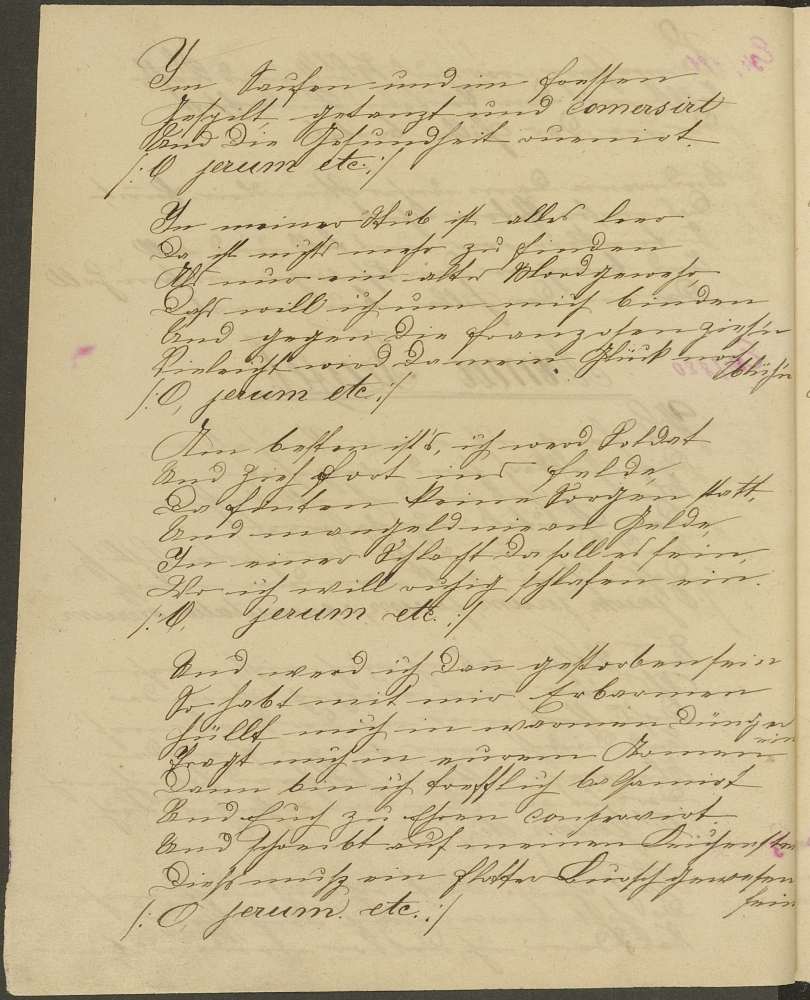 Im Saufen und im fressen
Gespilt getanzt und comersirt
Und die Gesundheit ruenirt.
/: O jerum etc :/
In meiner Stub ist alles leer
Da ist nichts mehr zu finden
Als nur ein altes Mordgewehr,
Dass will ich um mich binden
Und gegen die franzosen zieh'n
Vieleicht wird da mein Glück noch
blüh'n
/: O, jerum etc :/
Am besten ist's, ich werd Soldat
Und zieh fort ins felde,
Da finten keine Sorgen statt,
Und mangeld nie an Gelde,
In einer Schlacht da soll es sein,
Wo ich will ruhig schlafen ein.
/: O, jerum etc. :/
Und werd ich dan̄ gestorben sein
So habt mit mir Erbarmen
Hüllt mich in warmen Dünger
ein
Tragt mich in euren Armen
Dann bin ich trefflich balsamirt
Und Euch zu Ehren conservirt.
Und schreibt auf meinen Leichenstein
Diess muss ein flotter Bursch gewesen
sein
/: O jerum etc. :/